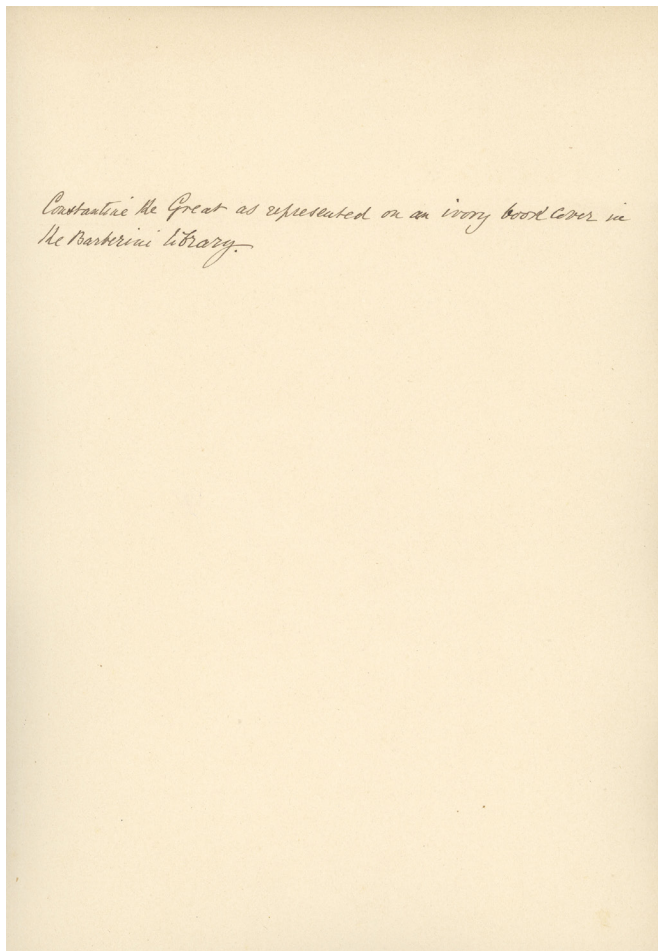 Constantine the Great as represented on an ivory book cover in
the Barberini library.